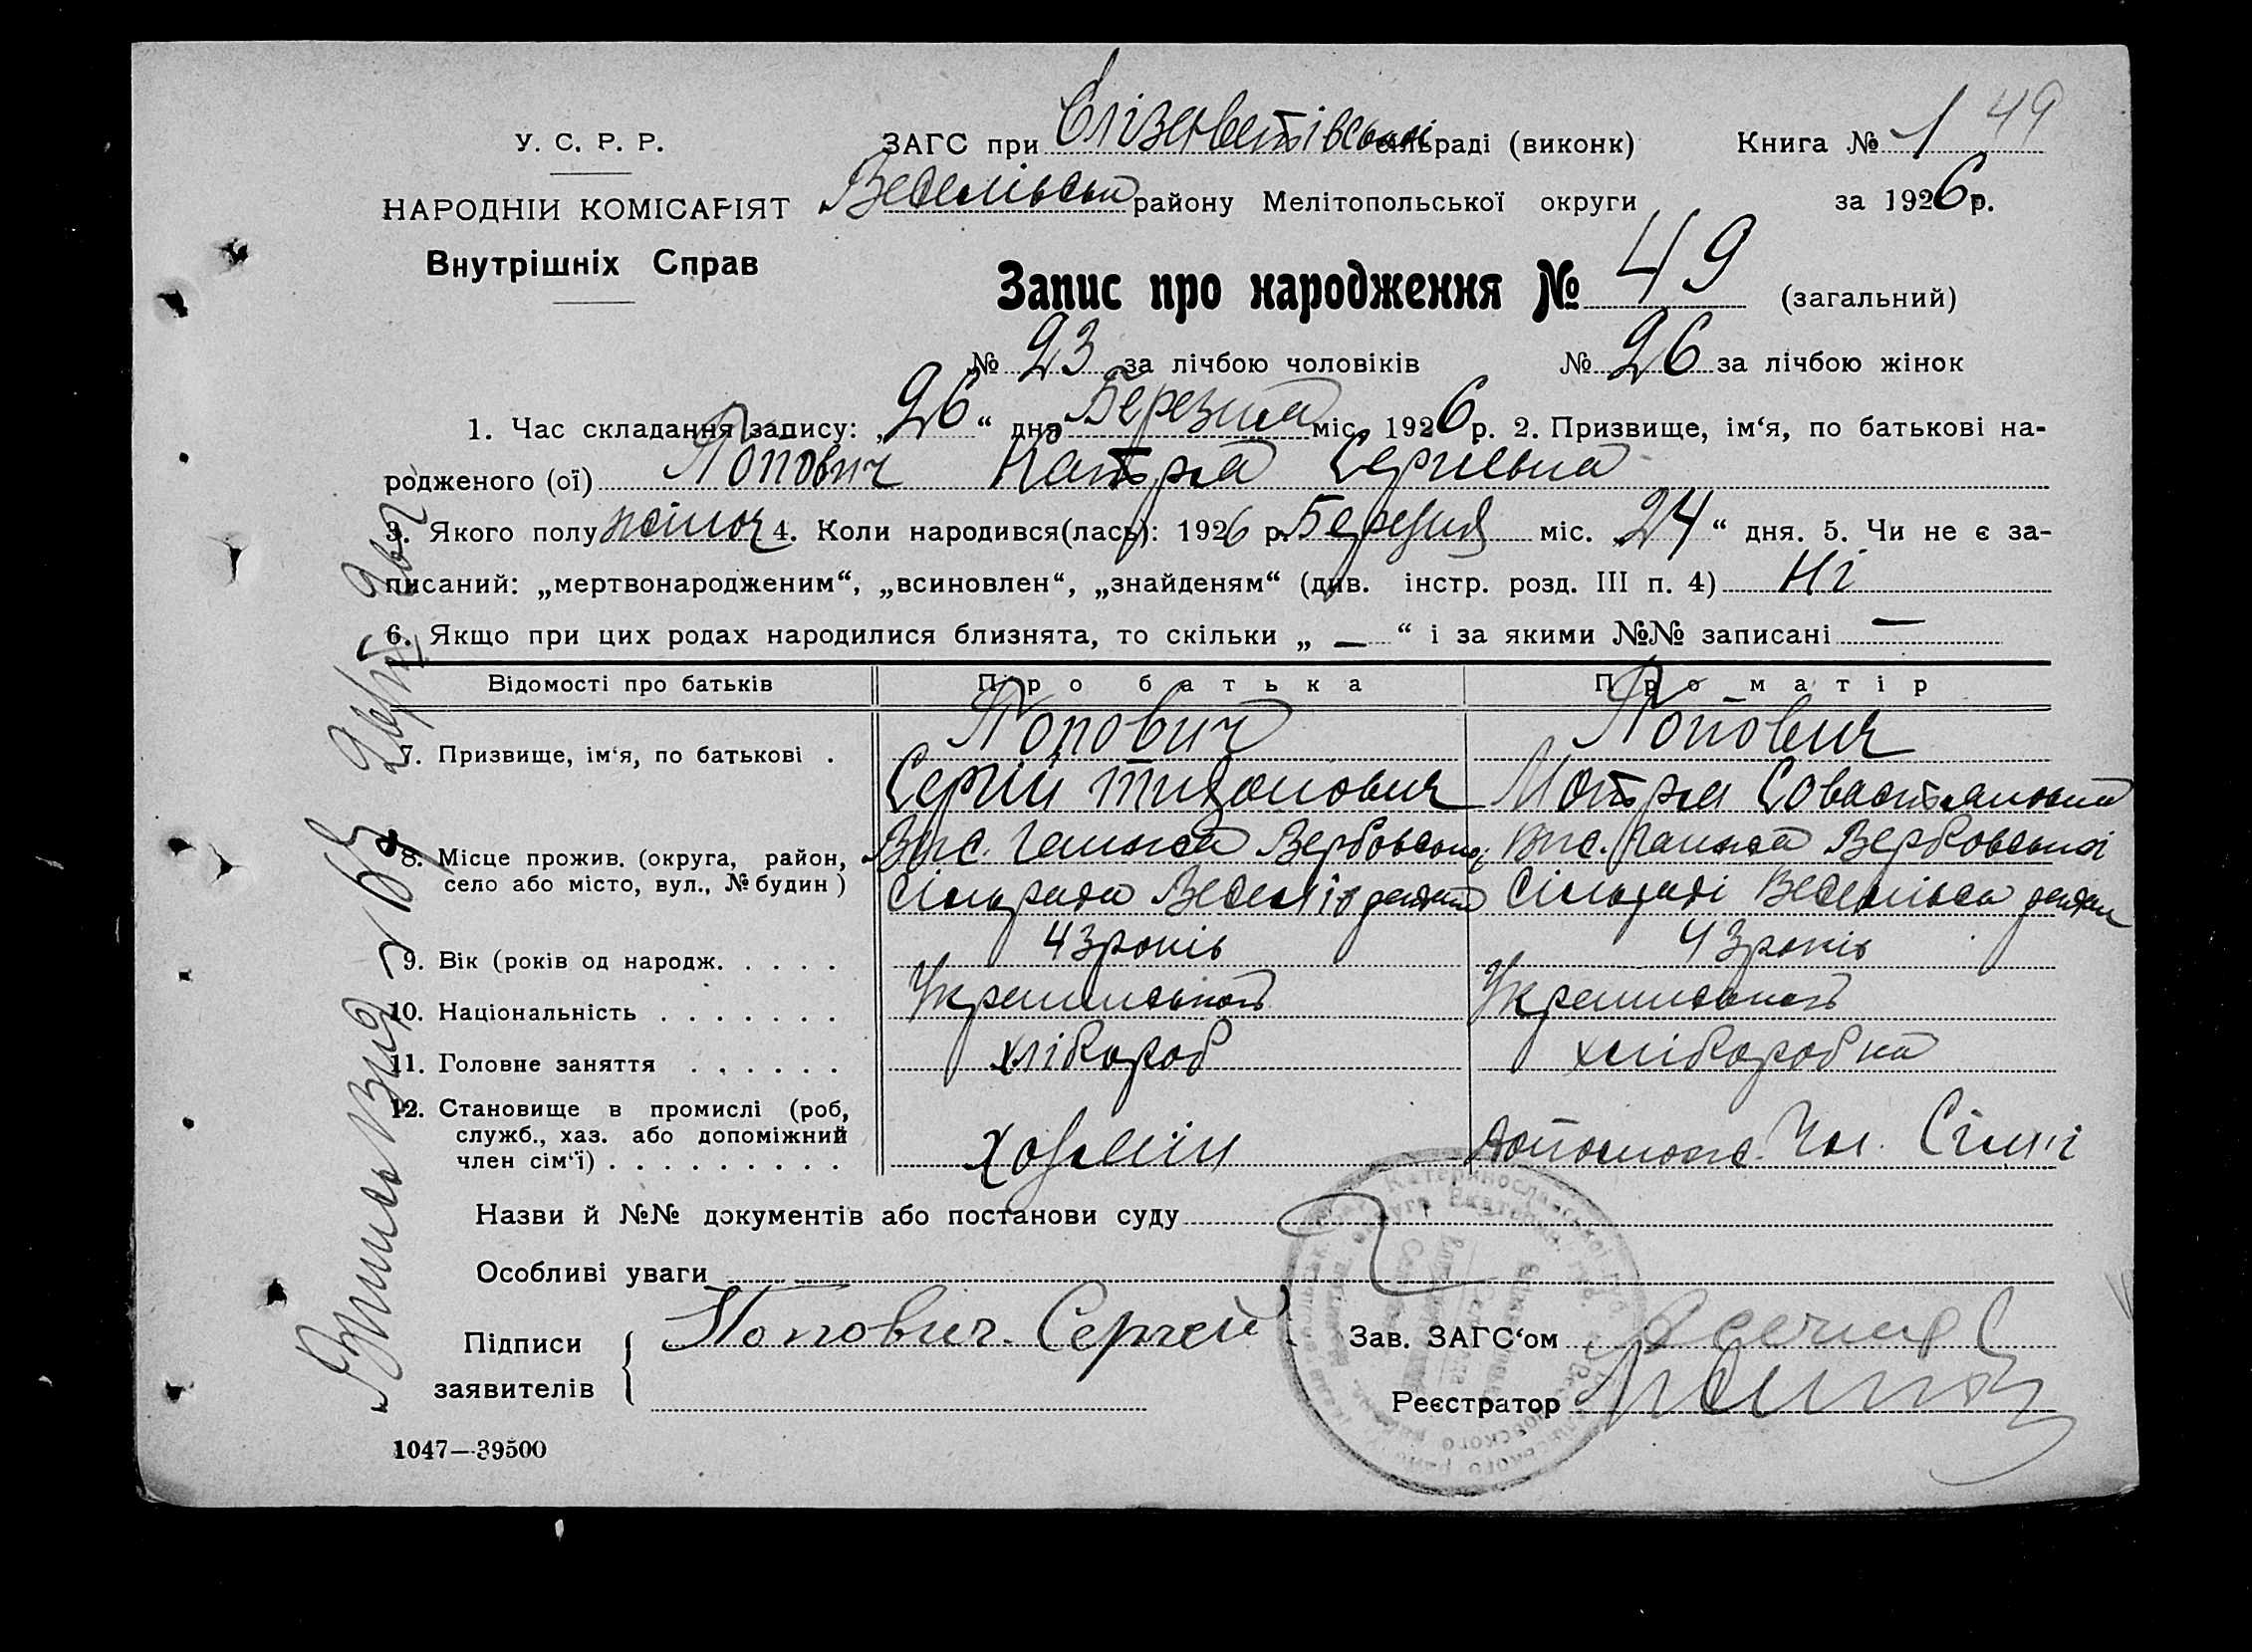 49
У. С. Р. Р.
ЗАГС при Єлізаветівськ сільраді (виконк) Книга № 1
Веселівськ району Мелітопольської округи за 1926 р.
НАРОДНІЙ КОМІСАРІЯТ
Внутрішніх Справ
Запис про народження № 49 (загальний)
№ 23 за лічбою чоловіків № 26 за лічбою жінок
1. Час складання запису: „26“ дня Березня міс. 1926 р. 2. Призвище, ім‘я, по батькові на-
родженого (ої) Попович Мотря Сергіевна
3. Якого полу жіноч 4. Коли народився(лась): 1926 р. Березня міс. 24“ дня. 5. Чи не є за-
писаний: „мертвонародженим“, „всиновлен“, „знайденям“ (див. інстр. розд. III п. 4) Ні
6. Якщо при цих родах народилися близнята, то скільки „ — “ і за якими №№ записані —
Відомості про батьків Про батька Про матір
7. Призвище, ім‘я, по батькові . Попович Попович
Сергій Тихонович Мотря Совастяновна
8. Місце прожив. (округа, район, село або місто, вул., № будин) Вис. Вербовської Вис. Вербовської
Сільради Весел району Сільраді Веселівск району
9. Вік (років од народж. . . . . 43 років 43 років
10. Національність . . . . . . . Украинськой Украинськой
11. Головне заняття . . . . . . хлібороб хліборобка
12. Становище в промислі (роб, служб., хаз. або допоміжний член сім‘ї) . . . . . . . . . Хозяїн допомож. Чл. Сімї
Назви й №№ документів або постанови суду
Особливі уваги
Підписи заявителів Попович Сергей
Зав. ЗАГС‘ом
Реєстратор
1047—39500